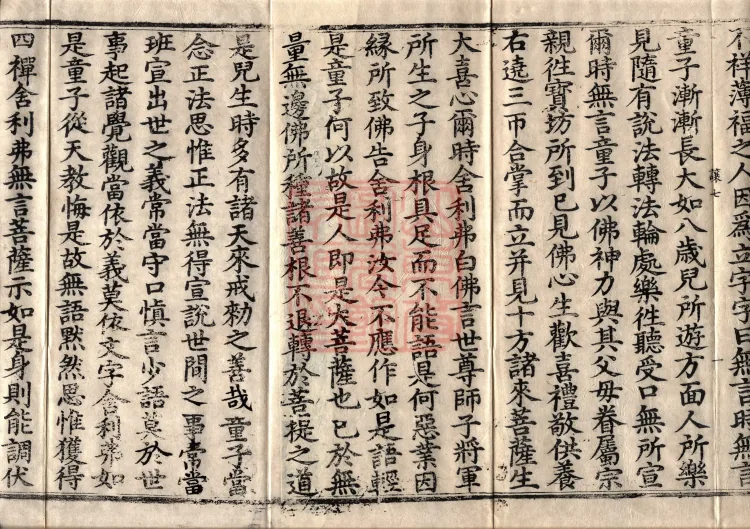 不祥薄福之人因爲立字字曰無言時無言
童子漸漸長大如八歲兒所遊方面人所樂
見隨有說法轉法輪處樂往聽受口無所宣
爾時無言童子以佛神力與其父母眷屬宗
親徃寶坊所到已見佛心生歡喜禮敬供養
右遶三帀合掌而立并見十方諸來菩薩生
大喜心爾時舍利弗白佛言世尊師子將軍
所生之子身根具足而不能語是何惡業因
縁所致佛告舍利弗汝今不應作如是語輕
是童子何以故是人即是大菩薩也已於無
量無邊佛所種諸善根不退轉於菩提之道
是兒生時多有諸天來戒勑之善哉童子當
念正法思惟正法無得宣說世間之事常當
班宣出世之義常當守口慎言少語莫於世
事起諸覺觀當依於義莫依文字舍利弗如
是童子從天教悔是故無語默然思惟獲得
四禪舍利弗無言菩薩示如是身則能調伏
讓七